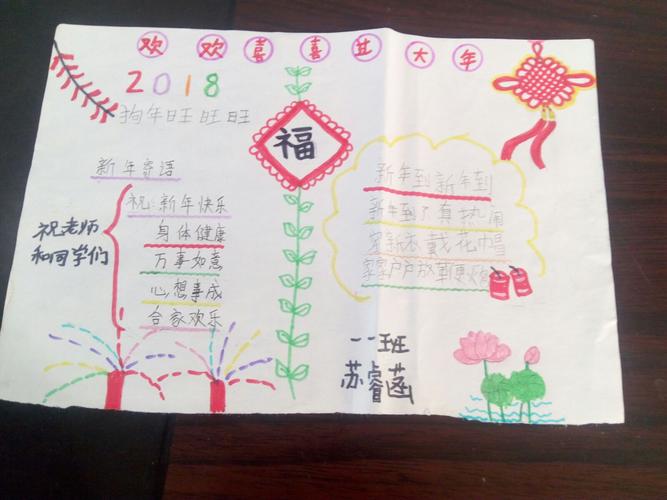 欢欢喜喜过大年
2018
狗年旺旺旺
福
新年寄语
祝老师
和同学们
祝新年快乐
身体健康
万事如意
心想事成
合家欢乐
新年到新年到
新年到了真热闹
穿新衣戴花帽
家家户户放鞭炮
一班
苏睿菡